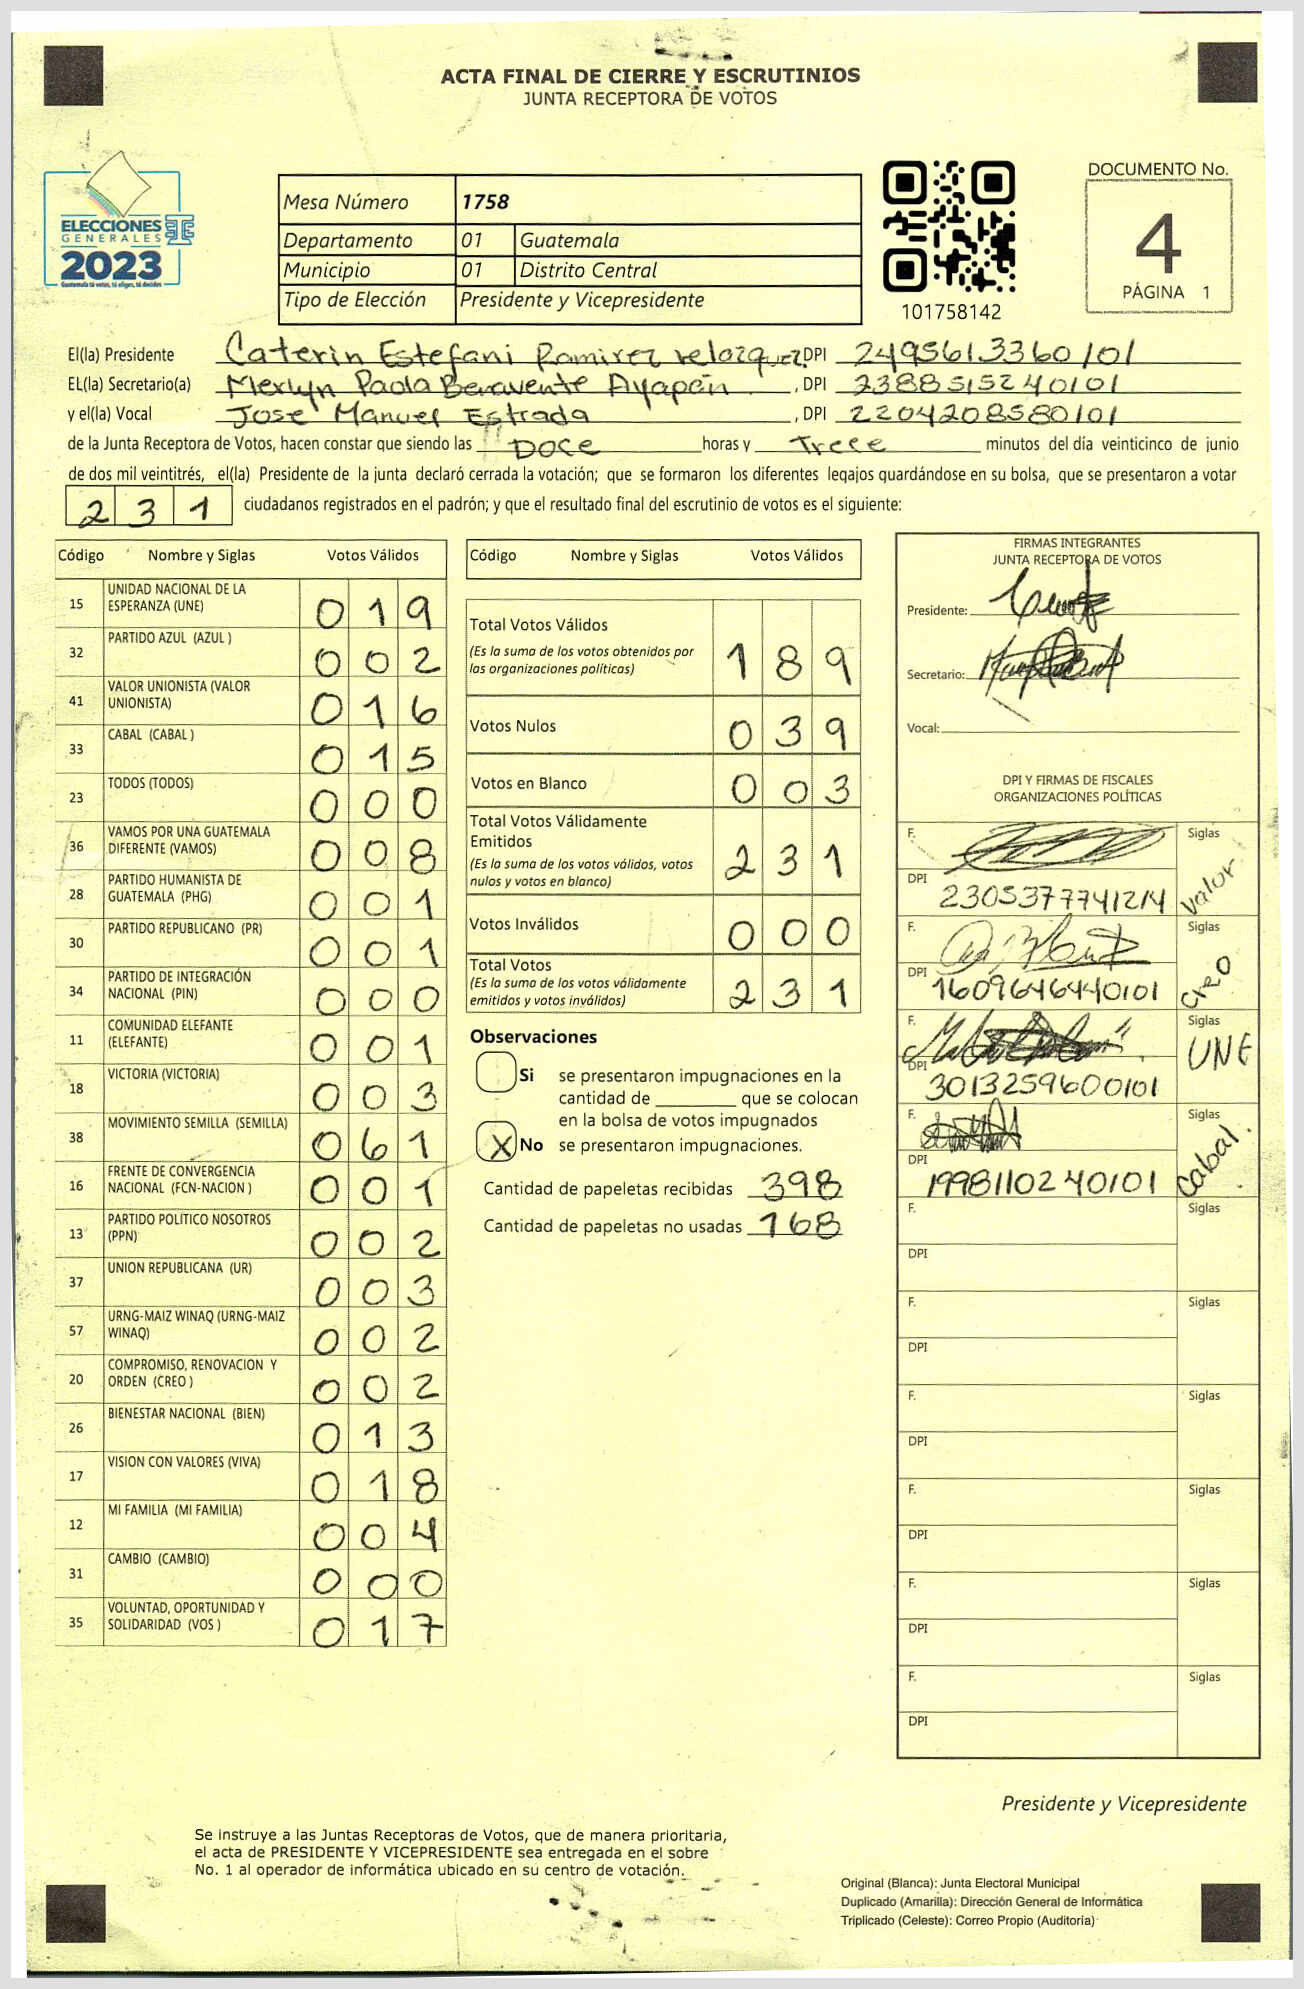 ACTA FINAL DE CIERRE Y ESCRUTINIOS
JUNTA RECEPTORA DE VOTOS
ELECCIONES
GENERALES
2023
Guatemala tú votas, tú eliges, tú decides
Mesa Número 1758
Departamento 01 Guatemala
Municipio 01 Distrito Central
Tipo de Elección Presidente y Vicepresidente
101758142
DOCUMENTO No.
4
PÁGINA 1
El(la) Presidente Caterin Estefani Ramirez Velazquez DPI 2495613360101
EL(la) Secretario(a) Merlyn Paola Benavente Ayapán , DPI 2388515240101
y el(la) Vocal Jose Manuel Estrada , DPI 2204208580101
de la Junta Receptora de Votos, hacen constar que siendo las Doce horas y Trece minutos del día veinticinco de junio
de dos mil veintitrés, el(la) Presidente de la junta declaró cerrada la votación; que se formaron los diferentes legajos quardándose en su bolsa, que se presentaron a votar
231 ciudadanos registrados en el padrón; y que el resultado final del escrutinio de votos es el siguiente:
Código Nombre y Siglas Votos Válidos
15 UNIDAD NACIONAL DE LA ESPERANZA (UNE) 019
32 PARTIDO AZUL (AZUL ) 002
41 VALOR UNIONISTA (VALOR UNIONISTA) 016
33 CABAL (CABAL ) 015
23 TODOS (TODOS) 000
36 VAMOS POR UNA GUATEMALA DIFERENTE (VAMOS) 008
28 PARTIDO HUMANISTA DE GUATEMALA (PHG) 001
30 PARTIDO REPUBLICANO (PR) 001
34 PARTIDO DE INTEGRACIÓN NACIONAL (PIN) 000
11 COMUNIDAD ELEFANTE (ELEFANTE) 001
18 VICTORIA (VICTORIA) 003
38 MOVIMIENTO SEMILLA (SEMILLA) 061
16 FRENTE DE CONVERGENCIA NACIONAL (FCN-NACION ) 001
13 PARTIDO POLITICO NOSOTROS (PPN) 002
37 UNION REPUBLICANA (UR) 003
57 URNG-MAIZ WINAQ (URNG-MAIZ WINAQ) 002
20 COMPROMISO, RENOVACION Y ORDEN (CREO ) 002
26 BIENESTAR NACIONAL (BIEN) 013
17 VISION CON VALORES (VIVA) 018
12 MI FAMILIA (MI FAMILIA) 004
31 CAMBIO (CAMBIO) 000
35 VOLUNTAD, OPORTUNIDAD Y SOLIDARIDAD (VOS ) 017
Código Nombre y Siglas Votos Válidos
Total Votos Válidos
(Es la suma de los votos obtenidos por
las organizaciones políticas) 189
Votos Nulos 039
Votos en Blanco 003
Total Votos Válidamente
Emitidos
(Es la suma de los votos válidos, votos
nulos y votos en blanco) 231
Votos Inválidos 000
Total Votos
(Es la suma de los votos válidamente
emitidos y votos inválidos) 231
Observaciones
Si se presentaron impugnaciones en la
cantidad de ________ que se colocan
en la bolsa de votos impugnados
X No se presentaron impugnaciones.
Cantidad de papeletas recibidas 398
Cantidad de papeletas no usadas 168
FIRMAS INTEGRANTES
JUNTA RECEPTORA DE VOTOS
Presidente:
Secretario:
Vocal:
DPI Y FIRMAS DE FISCALES
ORGANIZACIONES POLÍTICAS
F. Siglas Valor
DPI 2305377741214
F. Siglas Creo
DPI 1609646440101
F. Siglas UNE
DPI 3013259600101
F. Siglas Cabal.
DPI 1998110240101
F. Siglas
DPI
F. Siglas
DPI
F. Siglas
DPI
F. Siglas
DPI
F. Siglas
DPI
F. Siglas
DPI
Presidente y Vicepresidente
Se instruye a las Juntas Receptoras de Votos, que de manera prioritaria,
el acta de PRESIDENTE Y VICEPRESIDENTE sea entregada en el sobre
No. 1 al operador de informática ubicado en su centro de votación.
Original (Blanca): Junta Electoral Municipal
Duplicado (Amarilla): Dirección General de Informática
Triplicado (Celeste): Correo Propio (Auditoría)